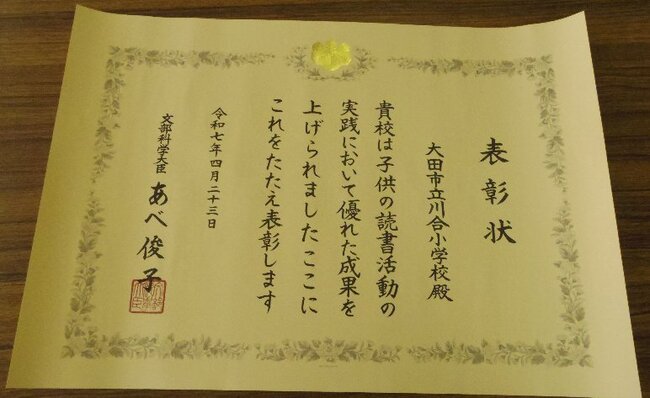 表彰状
大田市立川合小学校殿
貴校は子供の読書活動の
実践において優れた成果を
上げられましたここに
これをたたえ表彰します
令和七年四月二十三日
文部科学大臣 あべ俊子